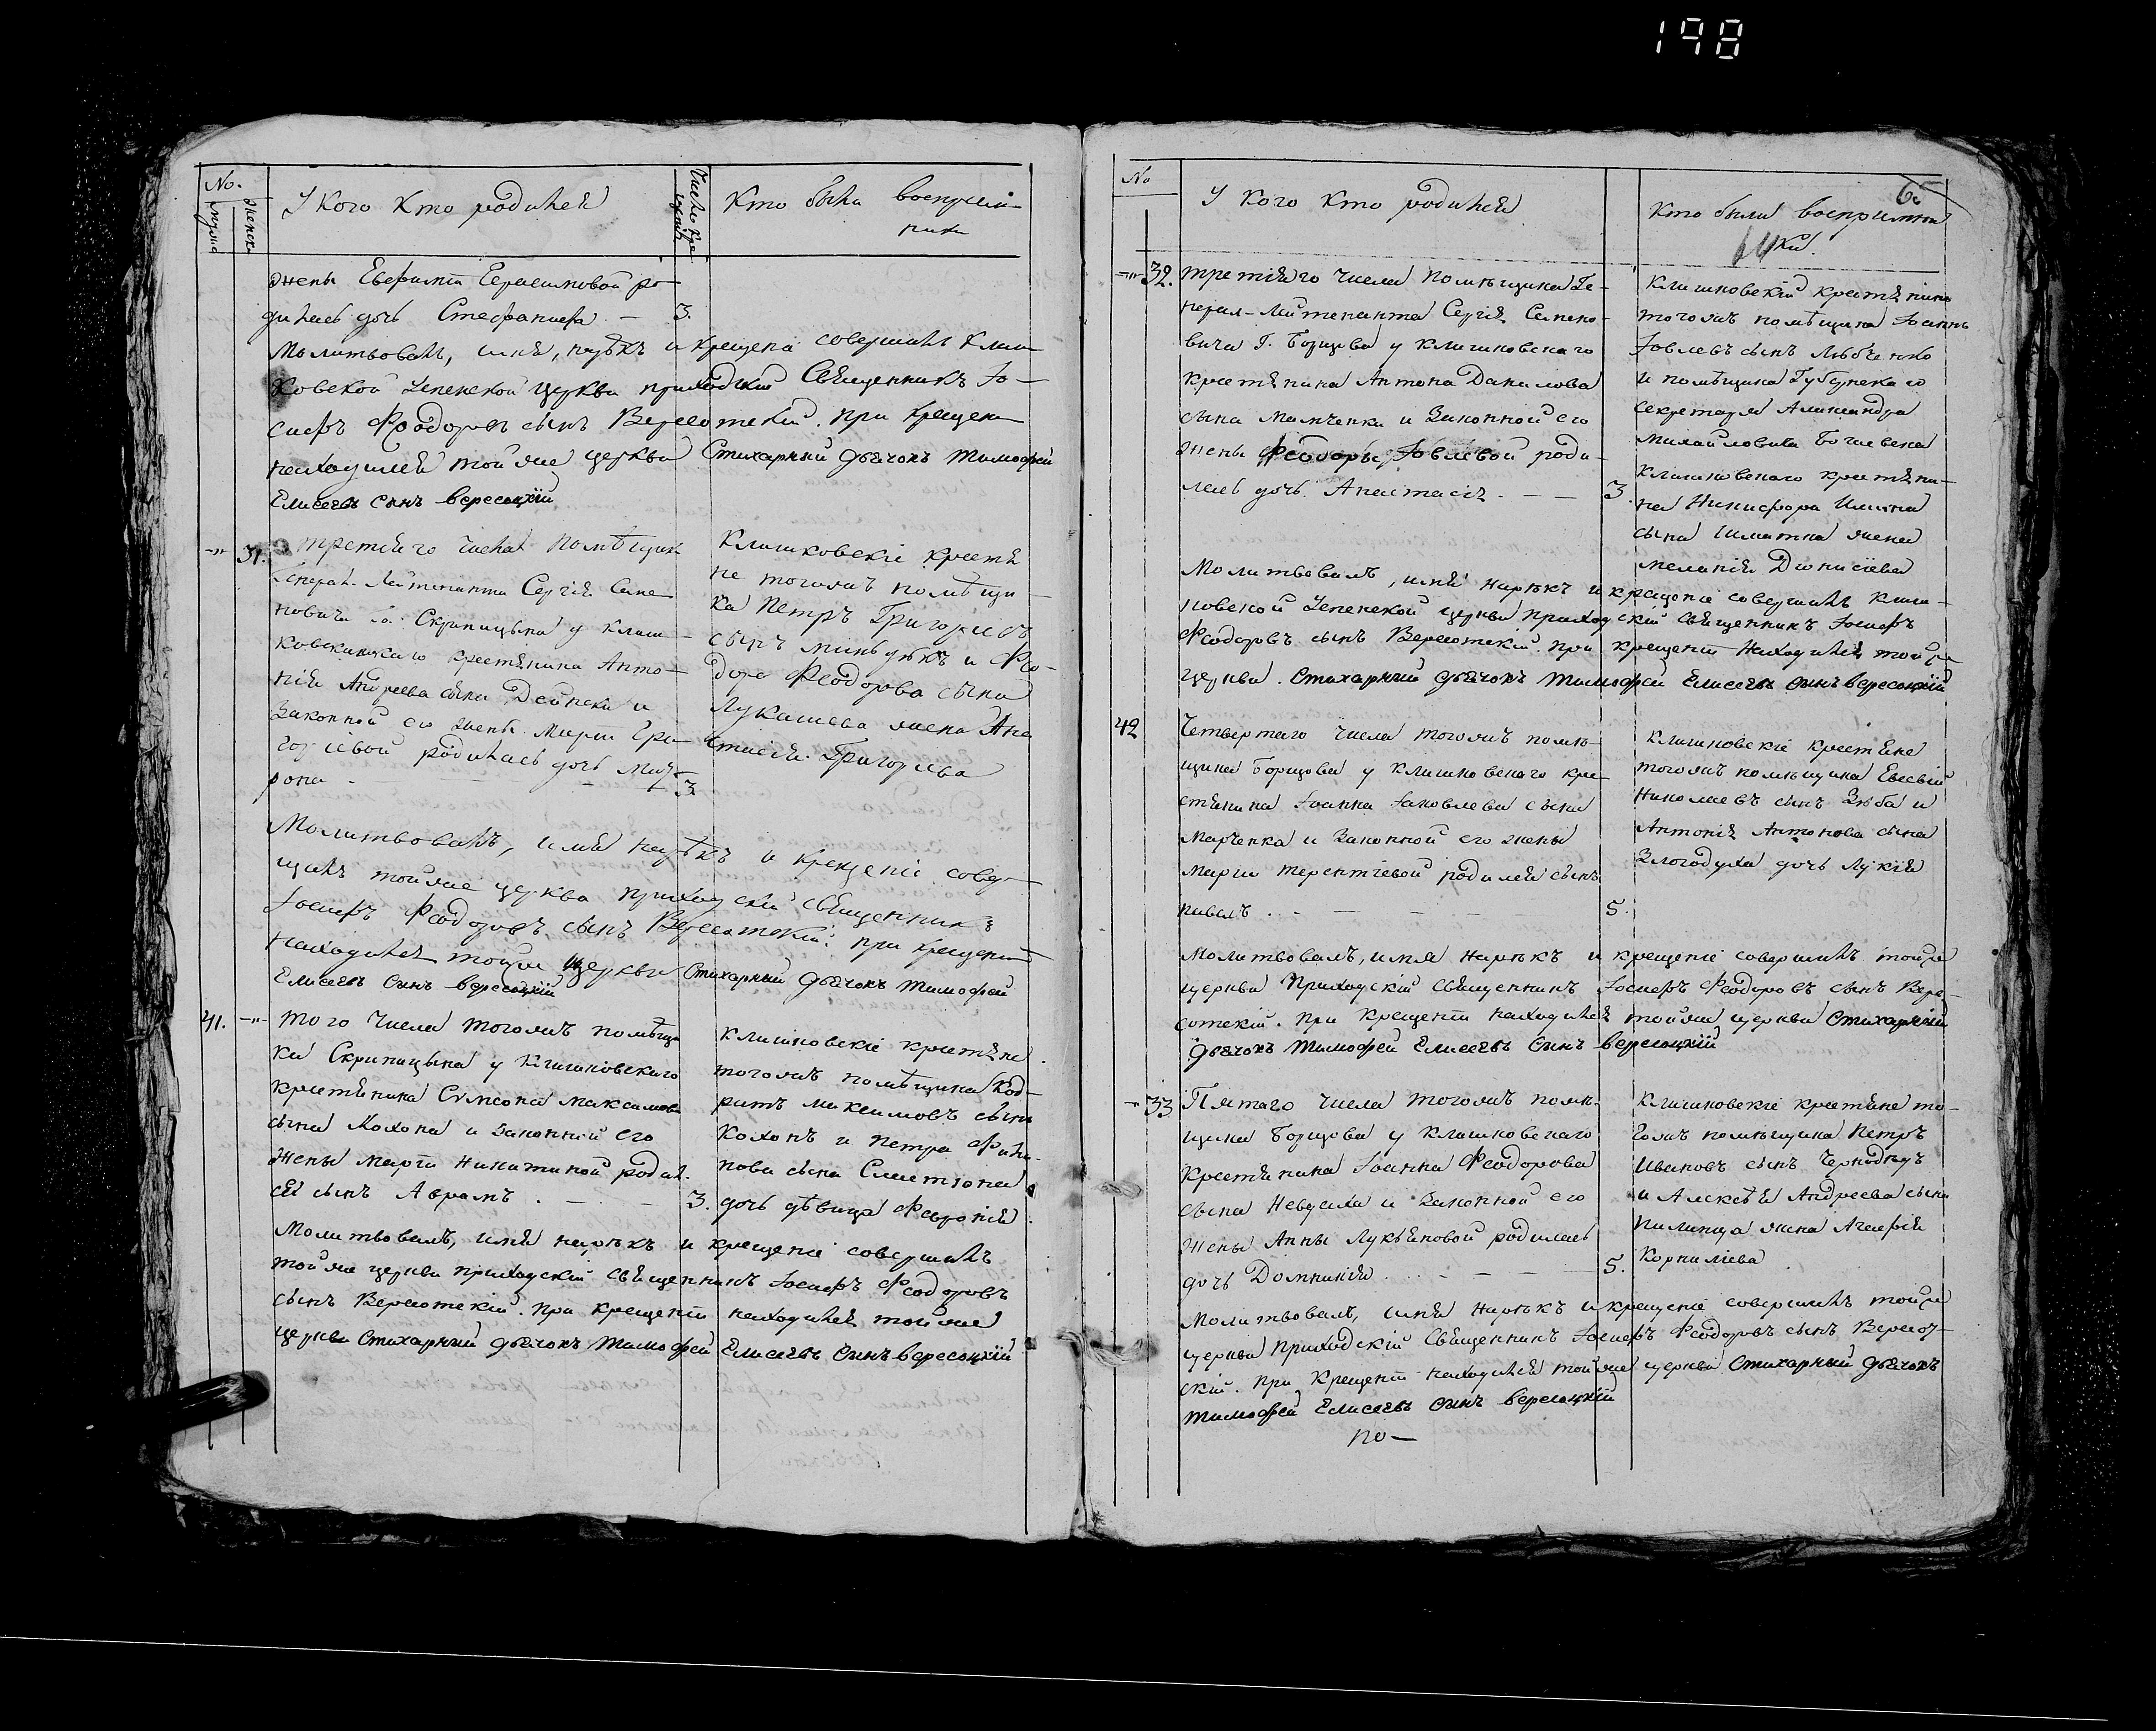 198
No.
мужс
женск
У Кого Кто родился
Число кре
щенія
Кто были воспріем
ники
жены Евфиміи Герасимовой ро
дилась дочь Стефанида — 3.
Молитвовалъ, имя, нарѣкъ и крещеніе совершилъ Клиш
ковской Успенской церкви приходскій Священникъ Іо-
сифъ Феодоровъ сынъ Вересотскій. при крещеніи
находился той же церкви Стихарный дьячокъ Тимофей
Елисеевъ сынъ вересоцкій
-"- 31. третяго числа помѣщика
Генерал-Лейтенанта Сергія Семе
новича Го: Скрипицына у Клиш-
ковскаго крестянина Анто-
нія Андреева сына Дейнеки и
Законной его жены Маріи Гри-
горіевой родилась дочь Мат-
рона — — 3
Клишковскіе крестя
не тогожъ помѣщи-
ка Петръ Григоріевъ
сынъ и Фео-
дора Феодорова сына
Лукашева жена Ана
стасія Григорьева
Молитвовалъ, имя нарѣкъ и крещеніе совер-
шилъ тойже церкви приходскій священникъ
Іосифъ Феодоровъ сынъ Вересотскій. при крещеніи
находился тойже церкви Стихарный дьячокъ Тимофей
Елисеевъ сынъ вересоцкій
41. -"- того числа тогожъ помѣщи
ка Скрипицына у Клишковскаго
крестянина Сѵмеона Максимова
сына Кохона и законной его
жены Марѳи Никитиной родил-
ся сынъ Аврамъ . — — 3.
Клишковскіе крестяне
тогожъ помѣщика Код-
ратъ Максимовъ сынъ
Кохонъ и Петра Фили-
пова сына
дочь дѣвица Февронія
Молитвовалъ, имя нарѣкъ и крещеніе совершилъ
той же церкви приходскій священникъ Іосифъ Феодоровъ
сынъ Вересотскій. при крещеніи находился той же
церкви Стихарный дьячокъ Тимофей Елисеевъ сынъ вересоцкій
No
У Кого Кто родился
65
Кто были воспріемни
64 ки.
-"- 32. третяго числа Помѣщика Ге-
нерал-Лейтенанта Сергія Семено-
вича Г. Борщова у клишковскаго
крестянина Антона Данилова
сына и Законной его
жены Феодоры Іовлевой роди-
лась дочь Анастасія. — — 3.
Клишковскій крестянинъ
тогожъ помѣщика Іоаннъ
Іовлевъ сынъ Любченко
и помѣщика Губернскаго
секретаря Александра
Михайловича
клишковскаго крестяни-
на Никифора
сына жена
меланія Діонисіева
Молитвовалъ, имя нарѣкъ и крещеніе совершилъ клиш-
ковской Успенской церкви приходскій священникъ Іосифъ
Феодоровъ сынъ Вересотскій. при крещеніи находился тойже
церкви. Стихарный дьячокъ Тимофей Елисеевъ сынъ вересоцкій
42 Четвертаго числа тогожъ помѣ-
щика Борщова у Клишковскаго кре-
стянина Іоанна Іаковлева сына
Марченка и Законной его жены
Маріи терентіевой родился сынъ
павелъ . — — — 5.
Клишковскіе крестяне
тогожъ помѣщика Евсевій
Николаевъ сынъ Зюба и
Антонія Антонова сына
Злогодуха дочь Лукія
Молитвовалъ, имя нарѣкъ и крещеніе совершилъ тойже
церкви Приходскій священникъ Іосифъ Феодоровъ сынъ Вере-
сотскій. при крещеніи находился тойже церкви Стихарный
дьячокъ Тимофей Елисеевъ сынъ вересоцкій
-"- 33 Пятаго числа тогожъ помѣ-
щика Борщова у Клишковскаго
Крестянина Іоанна Феодорова
сына и Законной его
жены Анны Лукьяновой родилась
дочь Домникія — — — 5.
Клишковскіе крестяне то-
гожъ помѣщика Петръ
Ивановъ сынъ
и Алексѣя Андреева сына
Пилипца жена Агафія
Корнилиева
Молитвовалъ, имя нарѣкъ и крещеніе совершилъ тойже
церкви Приходскій Священникъ Іосифъ Феодоровъ сынъ Вересот-
скій. при Крещеніи находился тойже церкви Стихарный дьячокъ
Тимофей Елисеевъ сынъ вересоцкій
По-